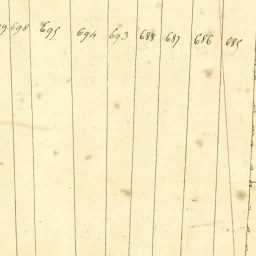 698 695 694 693 688 687 686 685